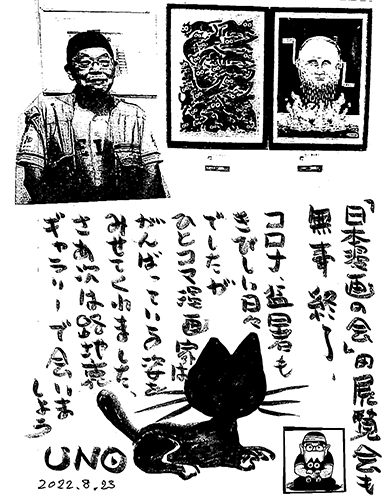 「日本漫画の会」の展覧会も
無事終了.
コロナ、猛暑も
きびしい日々
でしたが
ひとコマ漫画家は
がんばっている姿を
みせてくれました、
さあ次は路地裏
ギャラリーで会いま
しょう
UNO
2022.8.23